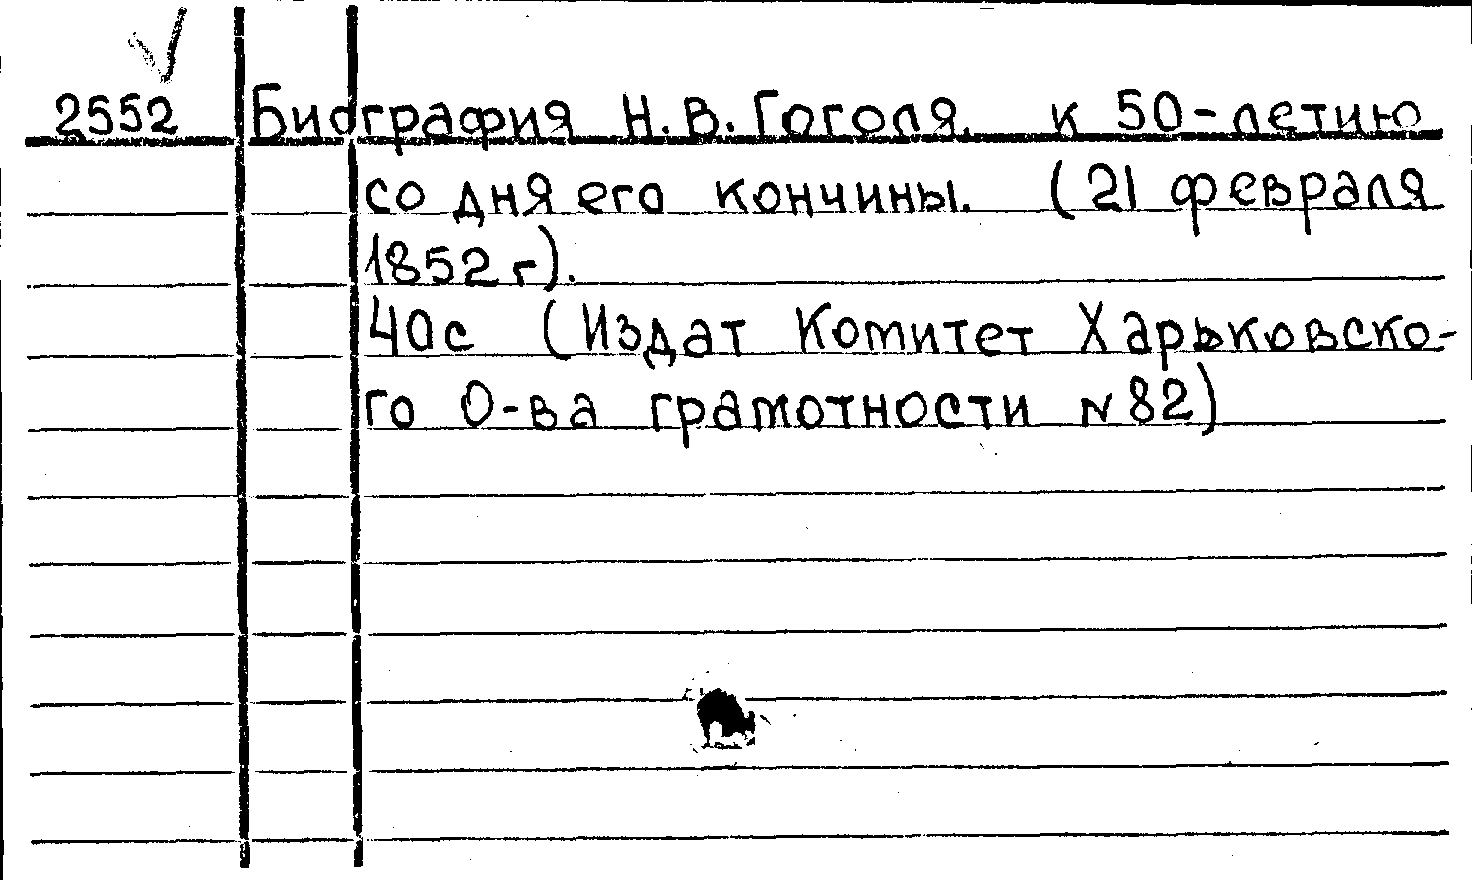 2552 Биография Н.В. Гоголя. к 50-летию
со дня его кончины. (21 февраля
1852 г).
40с (Издат Комитет Харьковско-
го О-ва грамотности N 82)